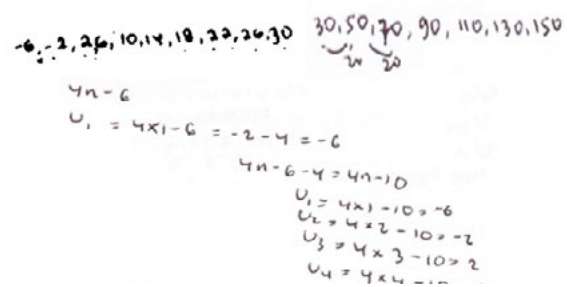 -6, -2, 2, 6, 10, 14, 18, 22, 26, 30
30, 50, 70, 90, 110, 130, 150
20 20
4n - 6
U₁ = 4×1 - 6 = -2 - 4 = -6
4n - 6 - 4 = 4n - 10
U₁ = 4×1 - 10 = -6
U₂ = 4×2 - 10 = -2
U₃ = 4×3 - 10 = 2
U₄ = 4×4 - 10